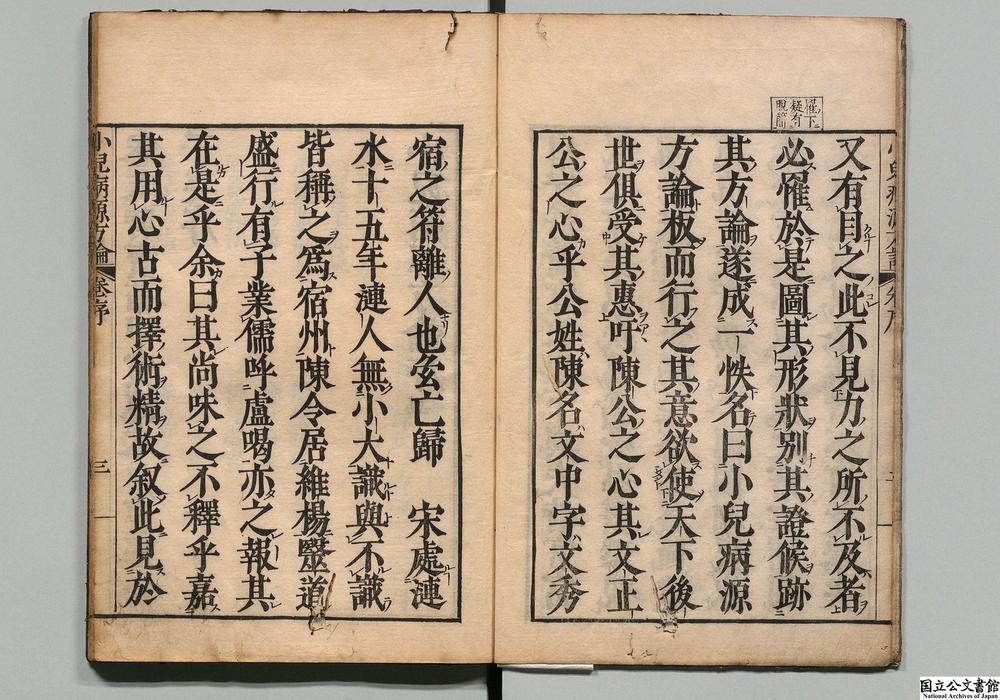 罹下
疑有
脱簡
又有目之此不見力之所不及者
必罹於是圖其形狀別其證候跡
其方論遂成一帙名曰小兒病源
方論板而行之其意欲使天下後
世俱受其惠吁陳公之心其文正
公之心乎公姓陳名文中字文秀
宿之符離人也金亡歸　宋處漣
水十五年漣人無小大識與不識
皆稱之爲宿州陳令居維楊毉道
盛行有子業儒呼盧喝亦之報其
在是乎余曰其尚味之不釋乎嘉
其用心古而擇術精故叙此見於
小兒病源方論　卷序　三
国立公文書館
National Archives of Japan